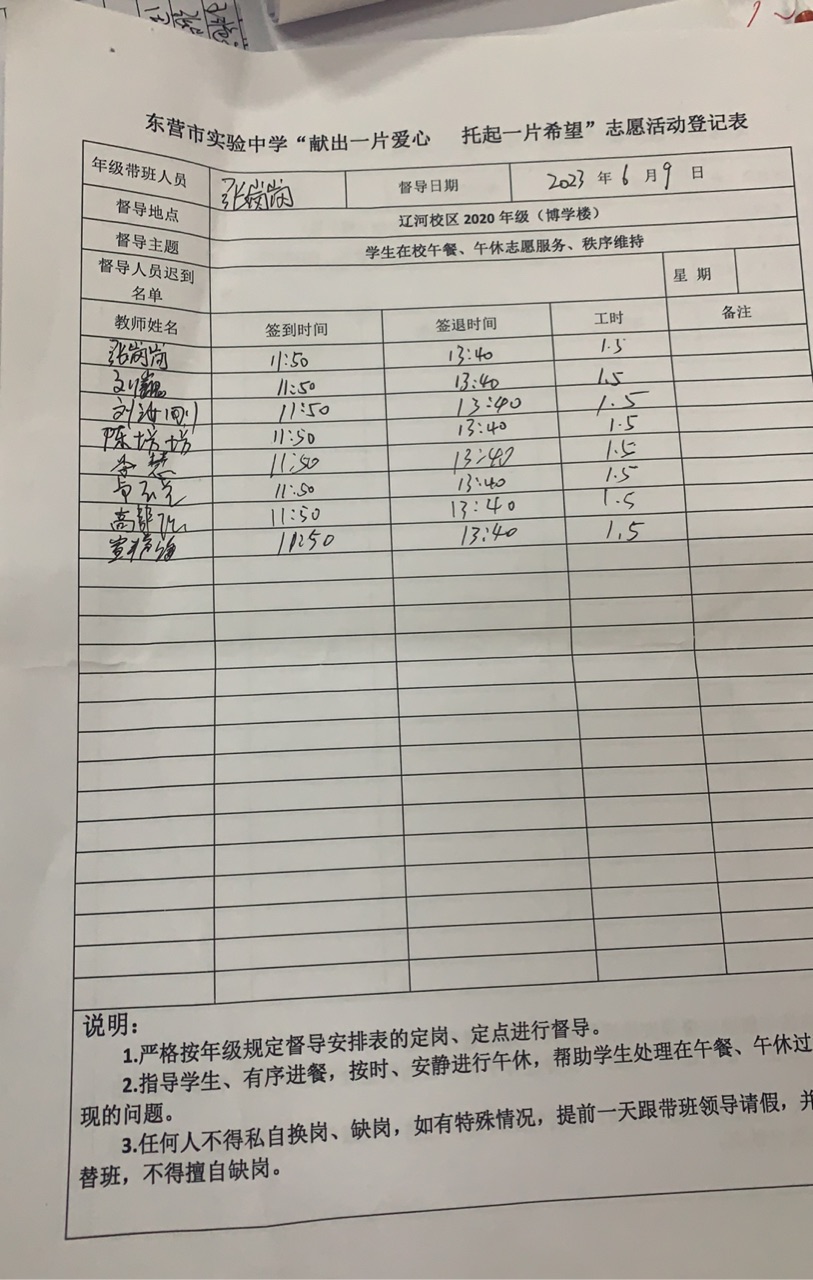 东营市实验中学“献出一片爱心 托起一片希望”志愿活动登记表
年级带班人员 张岗岗 督导日期 2023 年 6 月 9 日
督导地点 辽河校区 2020 年级（博学楼）
督导主题 学生在校午餐、午休志愿服务、秩序维持
督导人员迟到名单 星 期
教师姓名 签到时间 签退时间 工时 备注
张岗岗 11:50 13:40 1.5
11:50 13:40 1.5
11:50 13:40 1.5
陈培培 11:50 13:40 1.5
李慧 11:50 13:40 1.5
11:50 13:40 1.5
11:50 13:40 1.5
11:50 13:40 1.5
说明：
1.严格按年级规定督导安排表的定岗、定点进行督导。
2.指导学生、有序进餐，按时、安静进行午休，帮助学生处理在午餐、午休过
现的问题。
3.任何人不得私自换岗、缺岗，如有特殊情况，提前一天跟带班领导请假，并
替班，不得擅自缺岗。